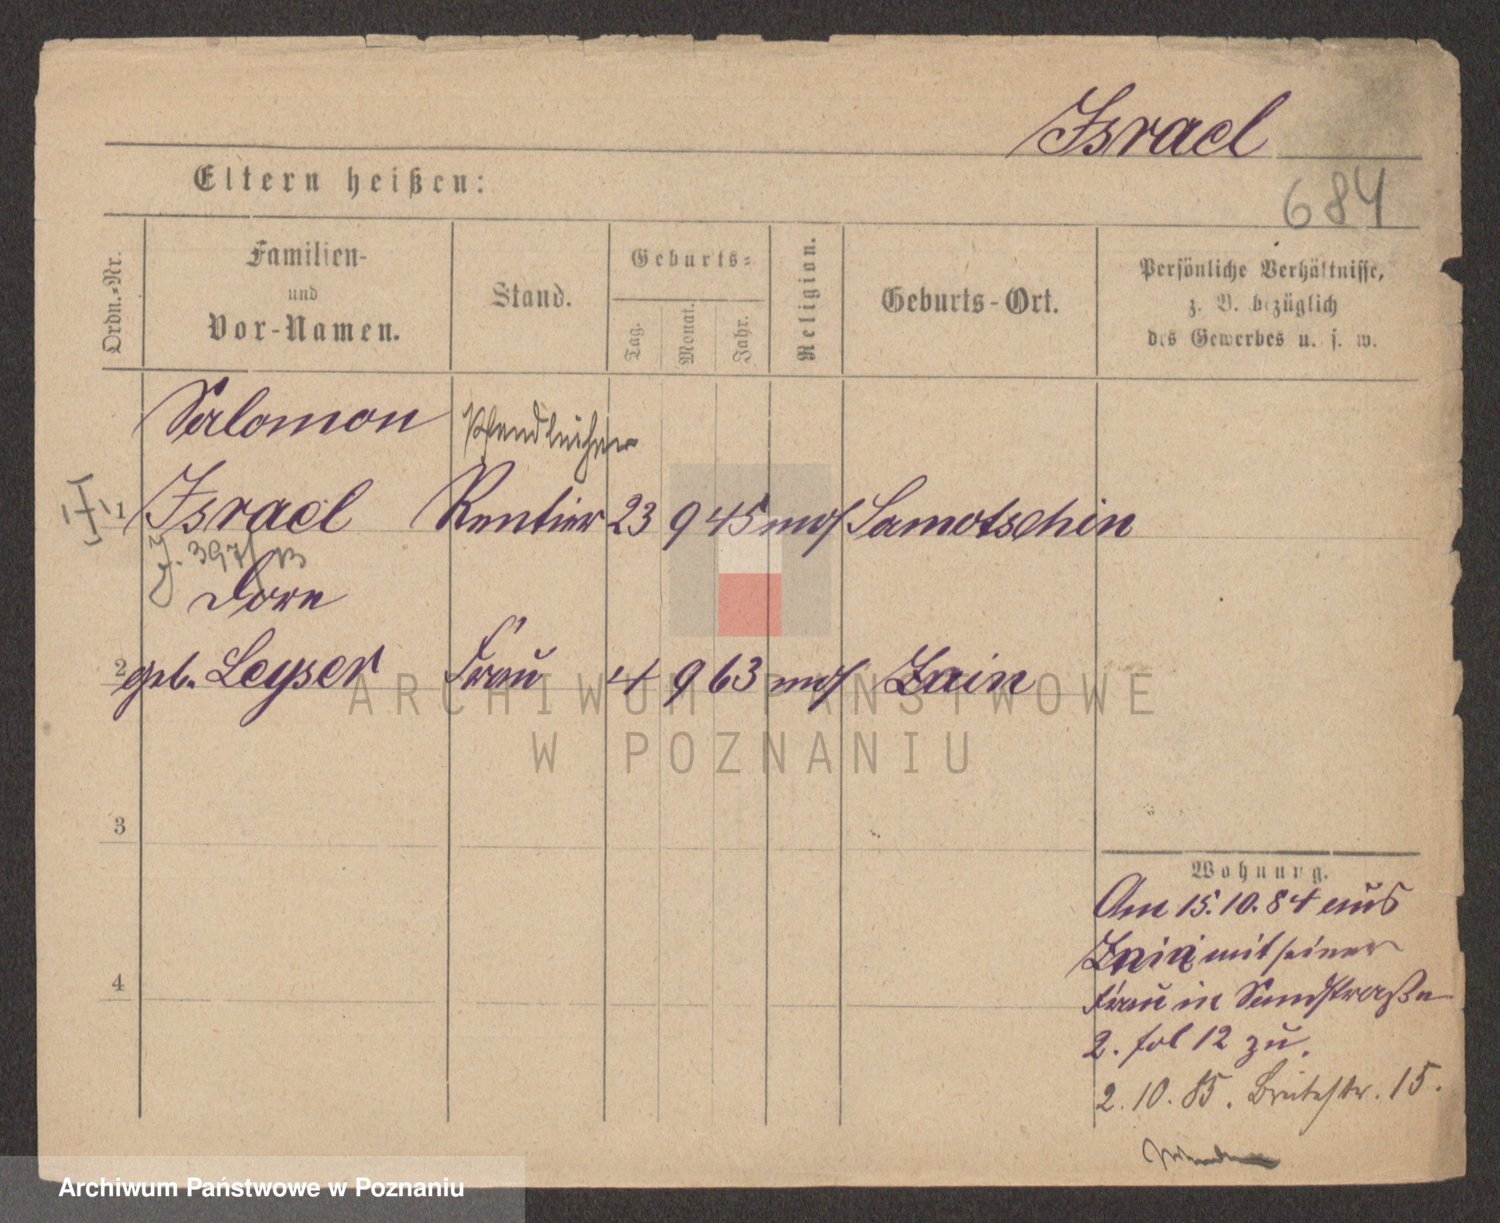 Israel
684
Eltern heißen:
Ordn.-Nr.
Familien-
und
Vor-Namen.
Stand.
Geburts-
Tag.
Monat.
Jahr.
Religion.
Geburts-Ort.
Persönliche Verhältnisse,
z. B. bezüglich
des Gewerbes u. s. w.
Salomon
Pfandleiher
1 Israel Rentier 23 9 45 mos Samotschin
J. 397/
Dore
2 geb. Leyser Frau 4 9 63 mos Znin
ARCHIWUM PAŃSTWOWE
W POZNANIU
3
Wohnung.
Am 15.10.84 aus
Znin mit seiner
4
Frau in Sandstraße
2. fol 12 zu.
2. 10. 85. Breitestr. 15.
Archiwum Państwowe w Poznaniu